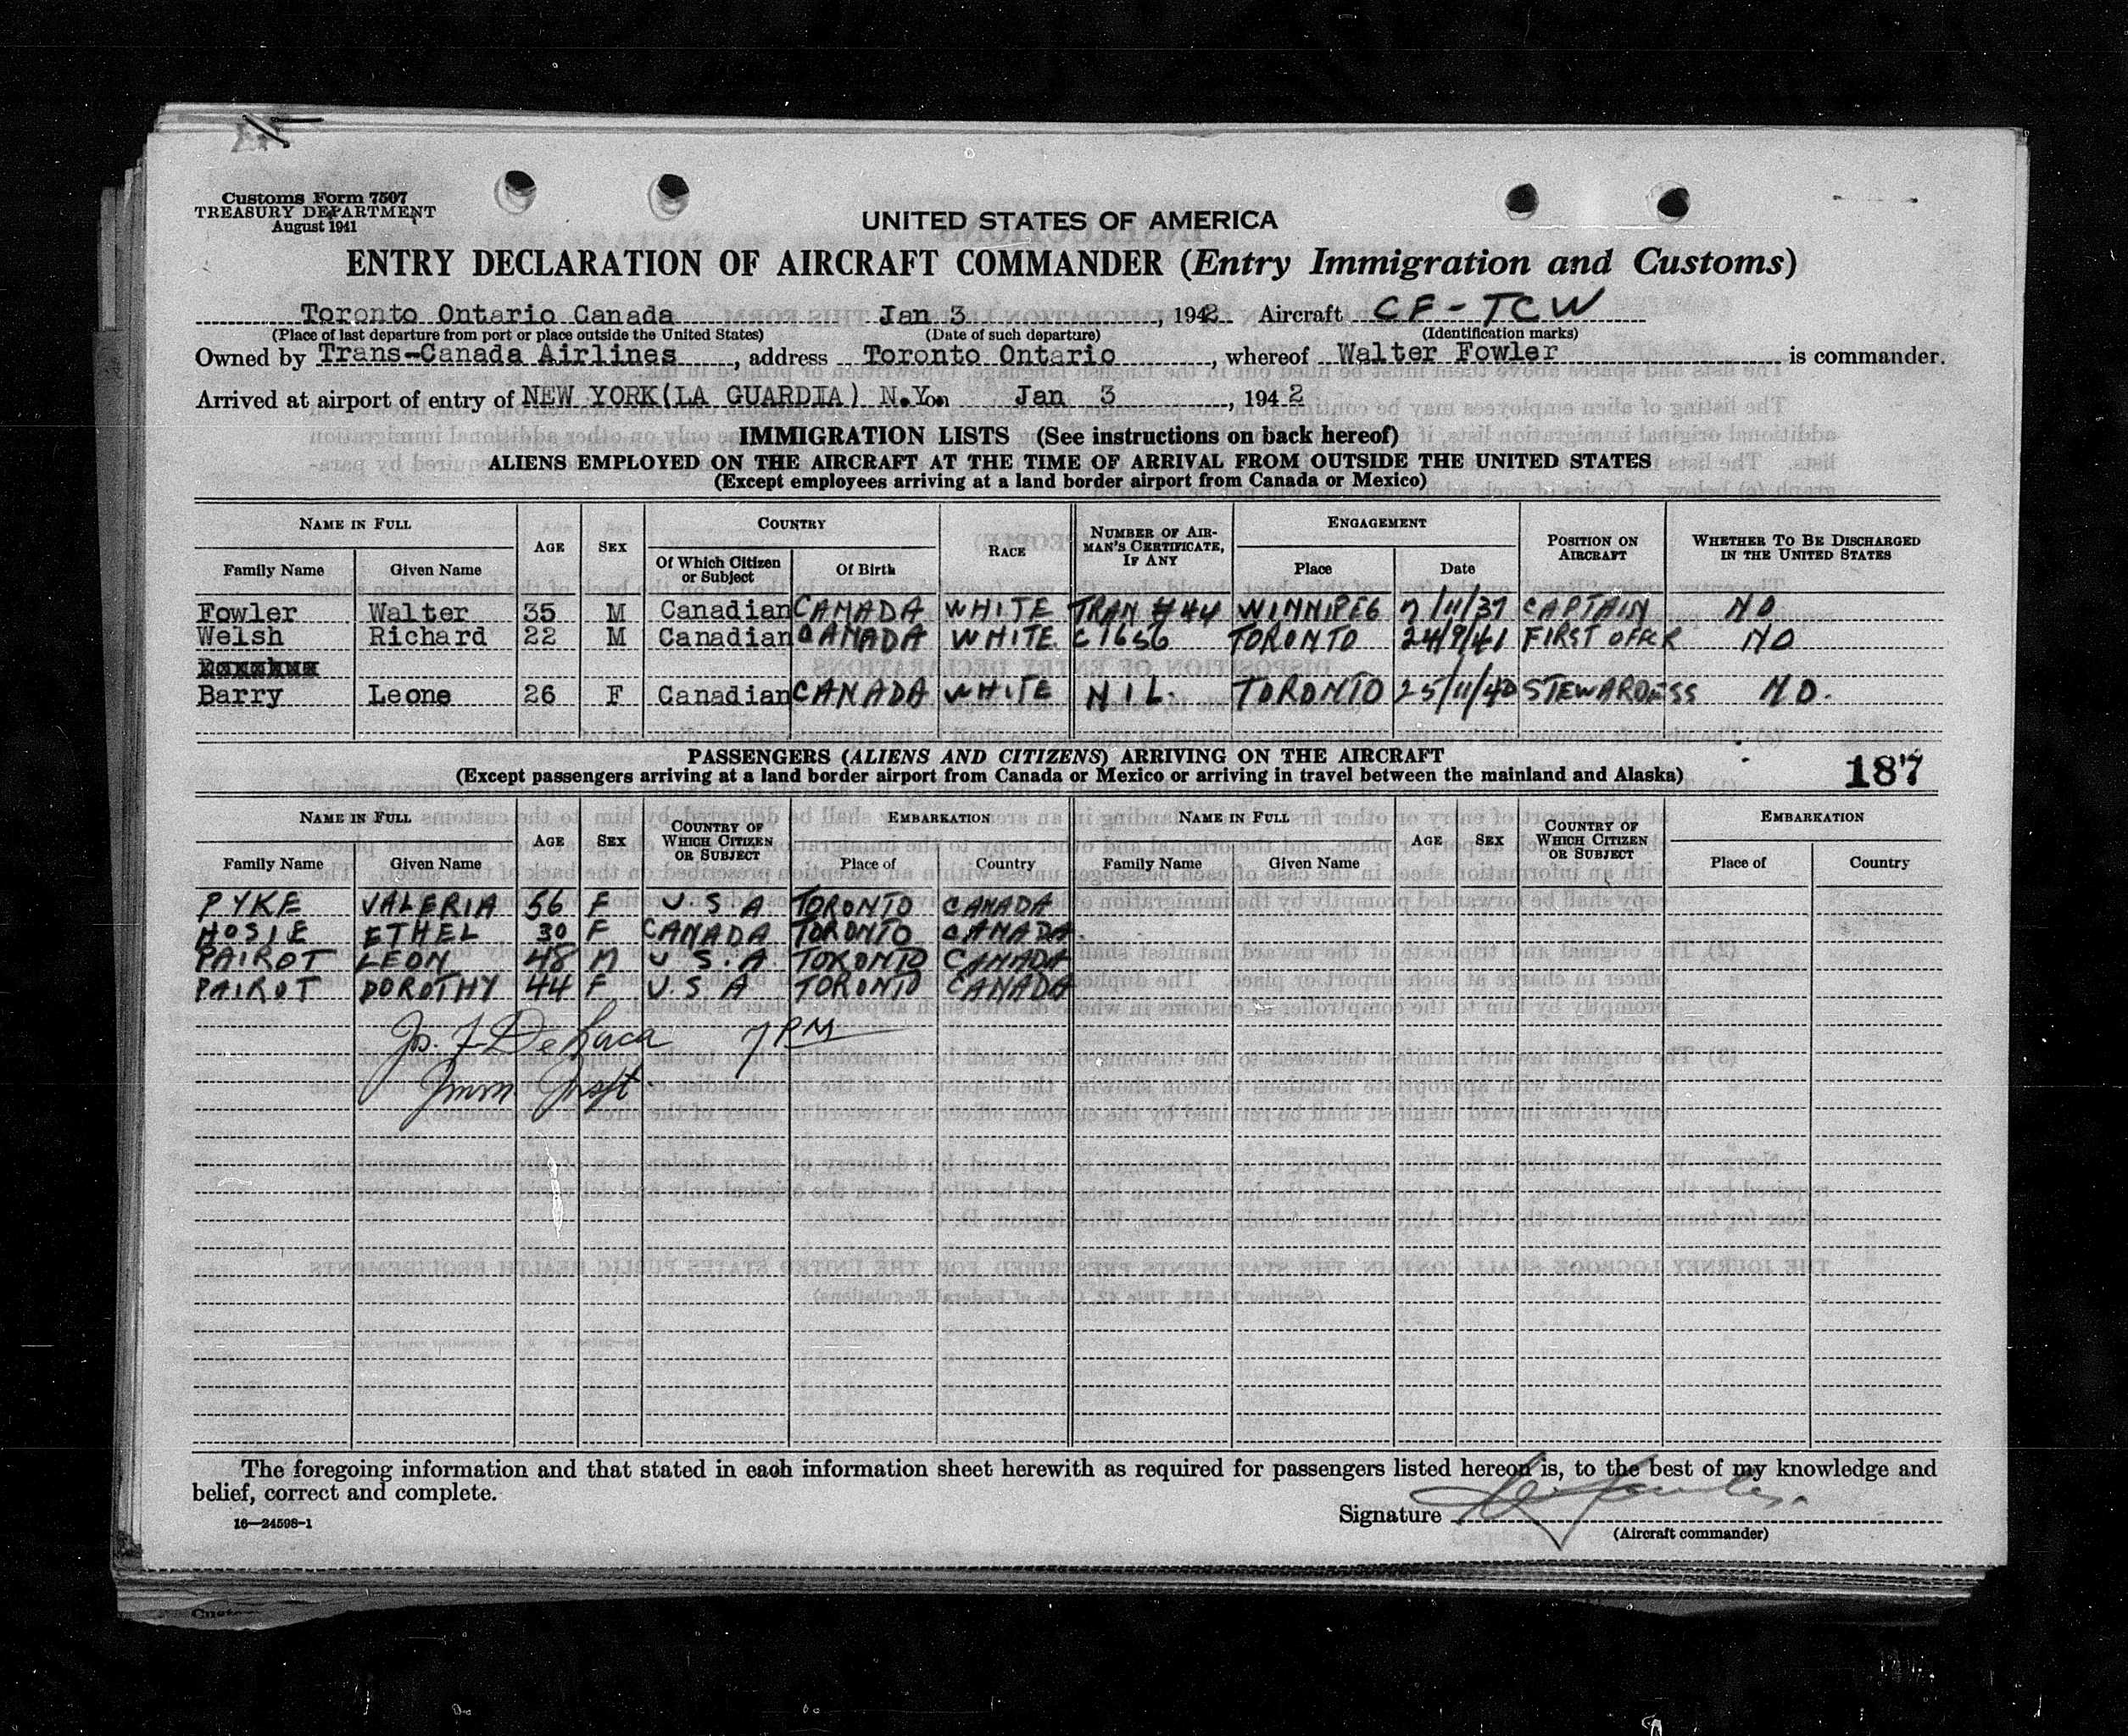 Customs Form 7507
TREASURY DEPARTMENT
August 1941
UNITED STATES OF AMERICA
ENTRY DECLARATION OF AIRCRAFT COMMANDER (Entry Immigration and Customs)
Toronto Ontario Canada Jan 3, 1942 Aircraft CF-TCW
(Place of last departure from port or place outside the United States) (Date of such departure) (Identification marks)
Owned by Trans-Canada Airlines, address Toronto Ontario, whereof Walter Fowler is commander.
Arrived at airport of entry of NEW YORK (LA GUARDIA) N.Y. on Jan 3, 1942
IMMIGRATION LISTS (See instructions on back hereof)
ALIENS EMPLOYED ON THE AIRCRAFT AT THE TIME OF ARRIVAL FROM OUTSIDE THE UNITED STATES
(Except employees arriving at a land border airport from Canada or Mexico)
NAME IN FULL AGE SEX COUNTRY RACE NUMBER OF AIRMAN'S CERTIFICATE, IF ANY ENGAGEMENT POSITION ON AIRCRAFT WHETHER TO BE DISCHARGED IN THE UNITED STATES
Family Name Given Name Of Which Citizen or Subject Of Birth Place Date
Fowler Walter 35 M Canadian CANADA WHITE TRAN #44 WINNIPEG 7/11/37 CAPTAIN NO
Welsh Richard 22 M Canadian CANADA WHITE C1656 TORONTO 24/9/41 FIRST OFFCR NO
Barry Leone 26 F Canadian CANADA WHITE NIL. TORONTO 25/11/40 STEWARDESS NO.
PASSENGERS (ALIENS AND CITIZENS) ARRIVING ON THE AIRCRAFT
(Except passengers arriving at a land border airport from Canada or Mexico or arriving in travel between the mainland and Alaska)
187
NAME IN FULL AGE SEX COUNTRY OF WHICH CITIZEN OR SUBJECT EMBARKATION NAME IN FULL AGE SEX COUNTRY OF WHICH CITIZEN OR SUBJECT EMBARKATION
Family Name Given Name Place of Country Family Name Given Name Place of Country
PYKE VALERIA 56 F U S A TORONTO CANADA
HOSIE ETHEL 30 F CANADA TORONTO CANADA.
PAIROT LEON 48 M U S.A TORONTO CANADA
PAIROT DOROTHY 44 F U.S A TORONTO CANADA
Jos. F DeLuca 7 PM
Immn Inspt.
The foregoing information and that stated in each information sheet herewith as required for passengers listed hereon is, to the best of my knowledge and
belief, correct and complete.
Signature W Fowler.
16—24598-1
(Aircraft commander)